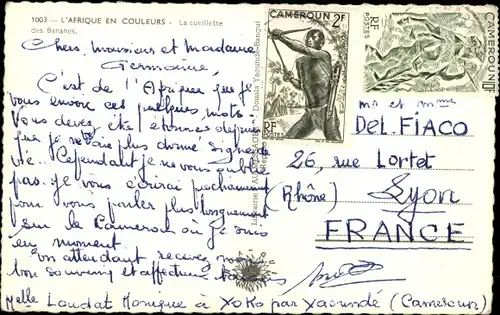 1003 - L'AFRIQUE EN COULEURS - La cueillette
des Bananes.
Chers Monsieur et Madame
Germaine,
C'est de l'Afrique que je
vous envoie ces quelques mots.
Vous devez être étonnés depuis
que je n'ai plus donné signe de
vie. Cependant je ne vous oublie
pas. Je vous écrirai prochainement
pour vous parler plus longuement
sur le Cameroun où je suis
en moment.
En attendant, recevez mon
bon souvenir et affectueux
Melle Loudat Monique à YOKO par Yaoundé (Cameroun)
CAMEROUN 2F
RF
POSTES
CAMEROUN
RF
POSTES
Mr et Mme
DEL FIACO
26, rue Lortet
(Rhône) Lyon
FRANCE